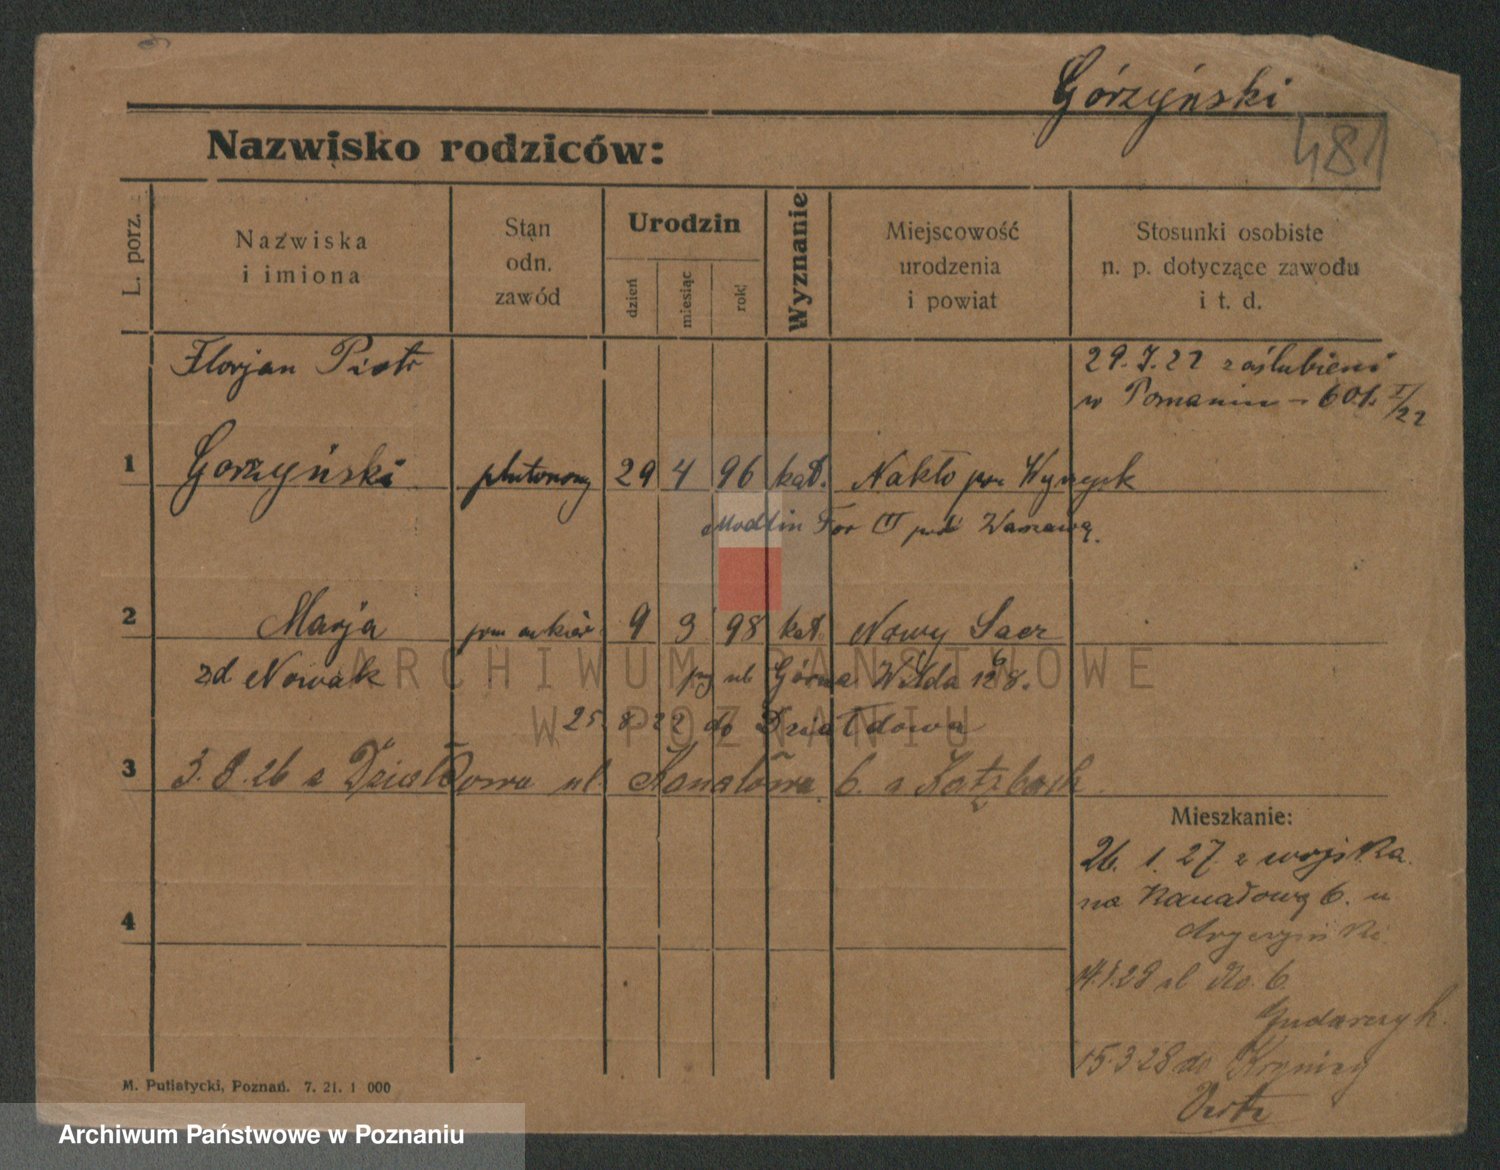 Górzyński
481
Nazwisko rodziców:
L. porz.
Nazwiska
i imiona
Stan
odn.
zawód
Urodzin
dzień
miesiąc
rok
Wyznanie
Miejscowość
urodzenia
i powiat
Stosunki osobiste
n. p. dotyczące zawodu
i t. d.
Florjan Piotr
29.7.22 zaślubieni
w Poznaniu - 601 I/22
1 Gorzyński plutonowy 29 4 96 kat. Nakło pow Wyrzysk
Modlin For III pod Warszawą.
2 Marja 9 3 98 kat. Nowy Sącz
zd Nowak ul Górna Wilda 128.
25.8.22 do Działdowa
3 3.8.26 z Działdowa ul. Kanałowa 6.
Mieszkanie:
26. 1. 27. z wojska
na Kanałową 6. u
4
6.
15.3.28 do Krynicy
M. Putiatycki, Poznań. 7. 21. 1 000
ARCHIWUM PAŃSTWOWE
W POZNANIU
Archiwum Państwowe w Poznaniu